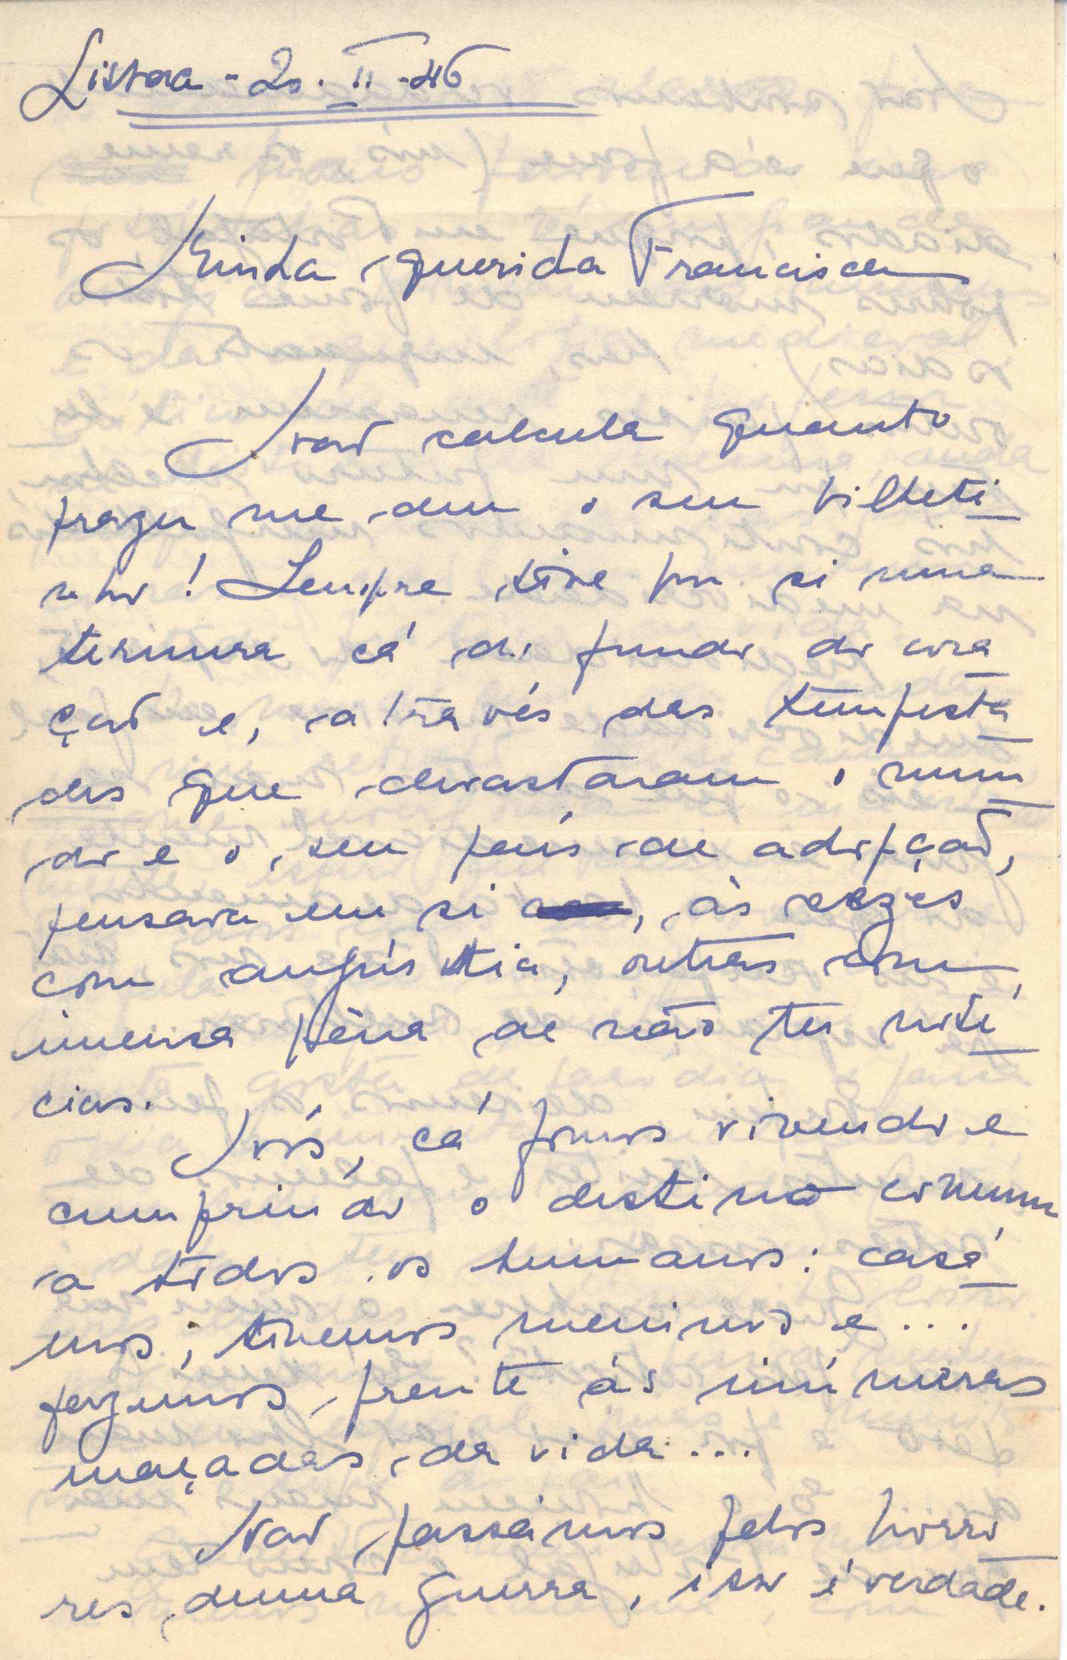 Lisboa - 20. II - 46
Minha querida Francisca
Não calcula quanto
prazer me deu o seu bilheti
nho! Sempre tive por si uma
ternura cá do fundo do cora
ção e, através das tempesta
des que devastaram o mun
do e o seu país de adopção,
pensava em si, às vezes
com angústia, outras com
imensa pêna de não ter notí
cias.
Nós, cá fomos vivendo e
cumprindo o destino comum
a todos os humanos: casá
mos; tivemos meninos e...
fazemos frente às inúmeras
maçadas da vida....
Não passámos pelos horro
res duma guerra, isso é verdade.